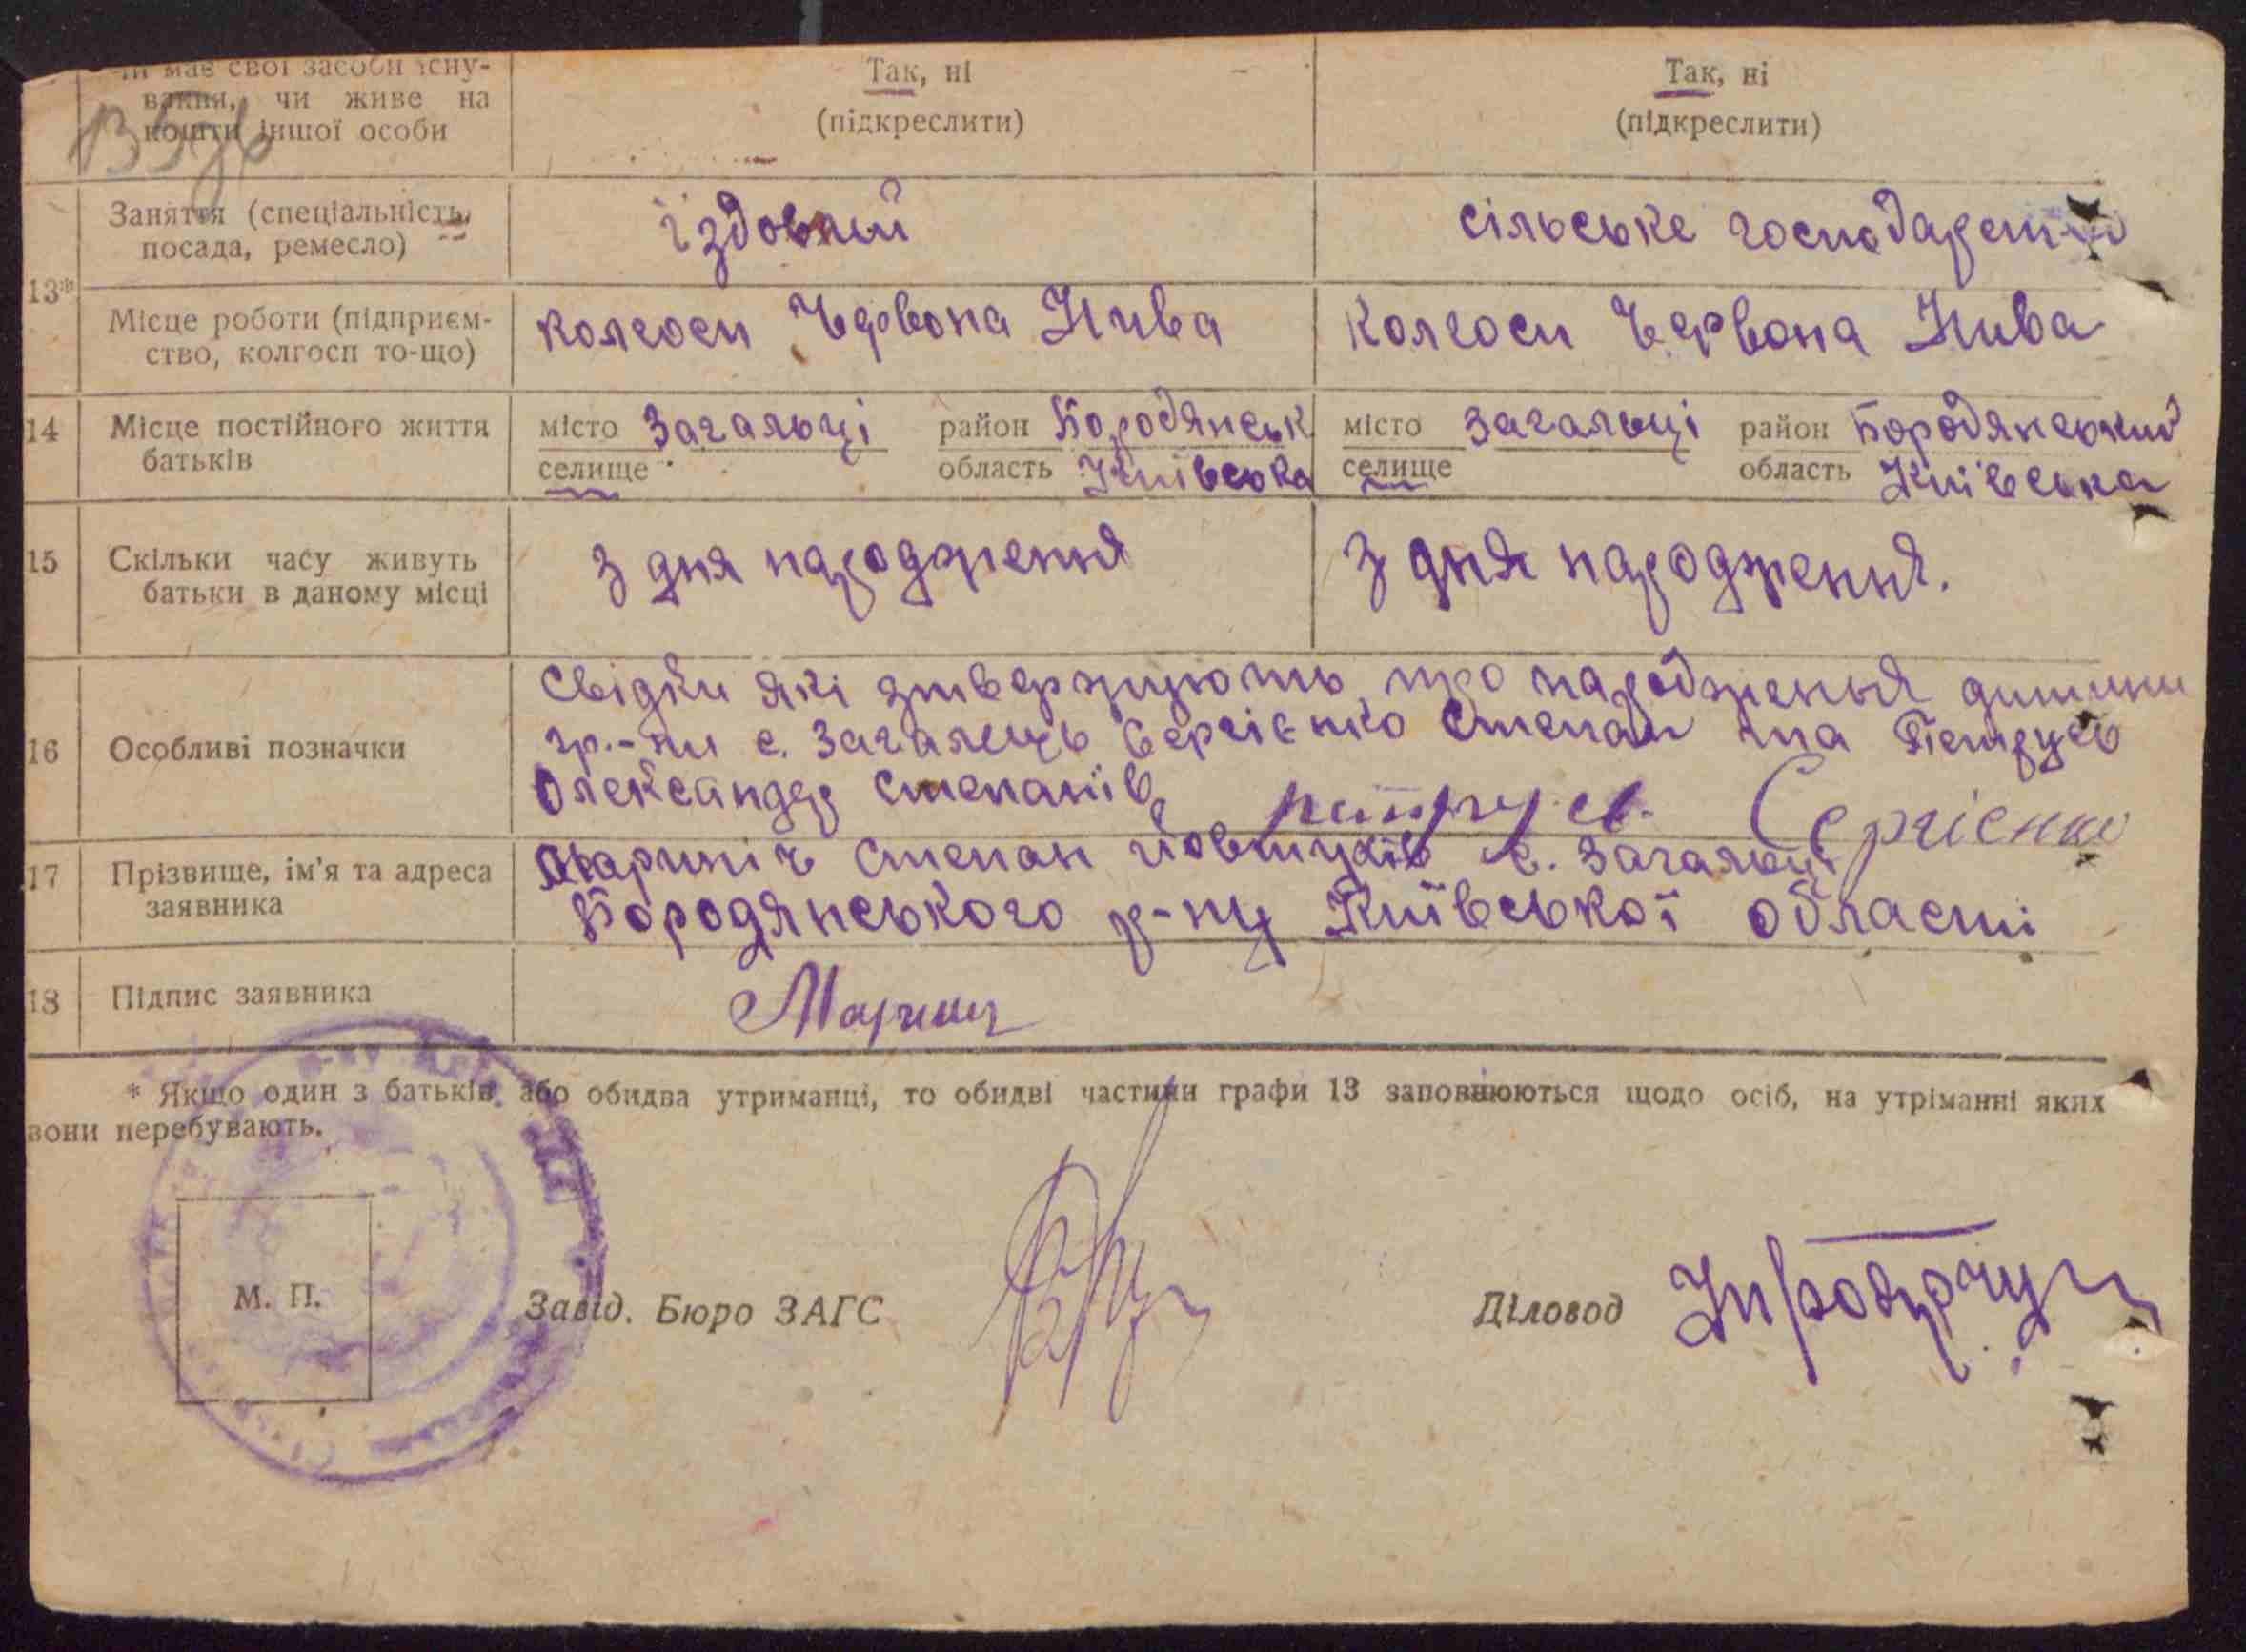 чи має свої засоби існу-
вання, чи живе на
кошти іншої особи
Так, ні
(підкреслити)
Так, ні
(підкреслити)
13*
Заняття (спеціальність,
посада, ремесло)
їздовний
сільське господарство
Місце роботи (підприєм-
ство, колгосп то-що)
колгосп Червона Нива
колгосп Червона Нива
14
Місце постійного життя
батьків
місто Загальці район Бородянськ
селище область Київська
місто Загальці район Бородянський
селище область Київська
15
Скільки часу живуть
батьки в даному місці
З дня народження
З дня народження.
16
Особливі позначки
Свідки які зтверджують про народження дитини
гр.-ни с. Загалець Сергієнко Степан та Петрусь
Олександр Степанів
Сергієнко
17
Прізвище, ім'я та адреса
заявника
Маринич Степан с. Загальці
Бородянського р-ну Київської області
18
Підпис заявника
* Якщо один з батьків або обидва утриманці, то обидві частини графи 13 заповнюються щодо осіб, на утріманні яких
вони перебувають.
М. П.
Завід. Бюро ЗАГС
Діловод